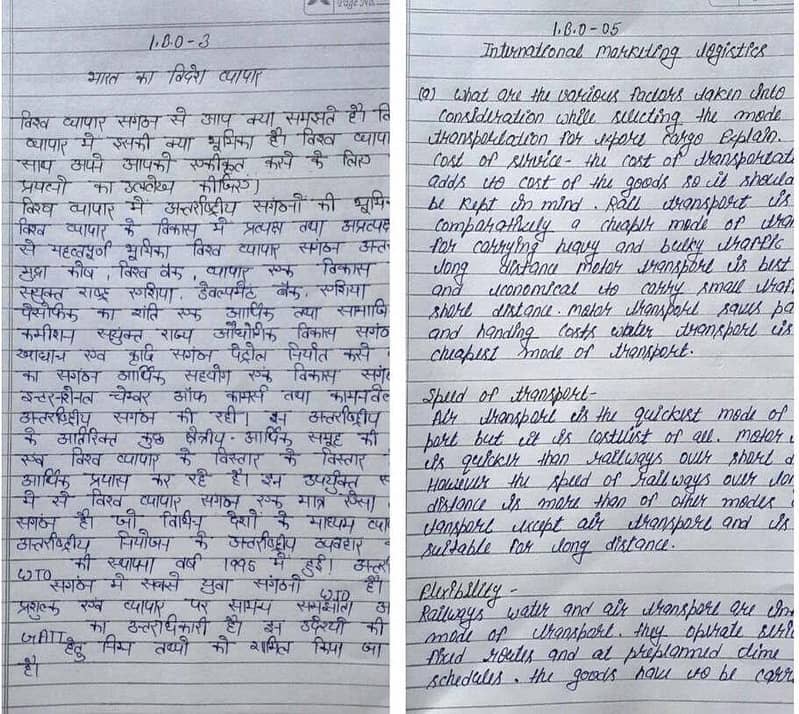 Page No.
I.B.O-3
भारत का विदेश व्यापार
विश्व व्यापार सगठन से आप क्या समझते है।
व्यापार मे इसकी क्या भूमिका है। विश्व व्यापा
साथ अपने आपको एकीकृत करने के लिए
प्रयत्नो का उल्लेख कीजिए।
विश्व व्यापार मे अन्तर्राष्ट्रीय सगठनो की भूमि
विश्व व्यापार के विकास मे प्रत्यक्ष तथा अप्रत्यक्ष
से महत्वपूर्ण भूमिका विश्व व्यापार सगठन अन्तर
मुद्रा कोष, विश्व बैंक, व्यापार एक विकास
सयुक्त राष्ट्र एशिया, डेवल्पमेंट बैंक, एशिया
पेसेफिक का शांति एक आर्थिक तथा सामाजि
कमीशन सयुक्त राज्य औद्योगिक विकास सगठ
खाद्यान्न एव कृषि सगठन पेट्रोल निर्यात करने
का सगठन आर्थिक सहयोग एक विकास सग
इन्टरनेशनल चेम्बर ऑफ कामर्स तथा कामनवेल
अन्तर्राष्ट्रीय सगठन की रही। इन अन्तर्राष्ट्रीय
के अतिरिक्त कुछ क्षेत्रीय-आर्थिक समूह की
एव विश्व व्यापार के विस्तार के विस्तार
आर्थिक प्रयास कर रहे है। इन उपर्युक्त
मे से विश्व व्यापार सगठन एक मात्र ऐसा
सगठन है। जो विभिन्न देशो के माध्यम व्या
अन्तर्राष्ट्रीय नियोजन के अन्तर्राष्ट्रीय व्यवहार
की स्थापना वर्ष 1995 मे हुई। अन्तर
WTO सगठन मे सबसे युवा सगठनो है।
WTO
प्रशुल्क एव व्यापार पर सामन्य समझौता
GATT का उत्तराधिकारी है। इन उद्देश्यो की
हेतु निम्न तथ्यो को शामिल किया जा
है।
I.B.O-05
International Marketing logistics
(a) What are the various factors taken into
consideration while selecting the mode
transportation for expore cargo explain.
cost of service- the cost of transportat
adds to cost of the goods so it should
be kept in mind. Rail transport is
comparatively a cheaper mode of tran
for carrying heavy and bulky traffic
long distance motor transport is best
and economical to carry small traf
short distance. motor transport saves pa
and handing costs water transport is
cheapest mode of transport.
Speed of transport-
Air transport is the quickest mode of
port but it is costliest of all. motor
is quicker than railways over short d
However the speed of railways over lon
distance is more than of other modes
transport except air transport and is
suitable for long distance.
Flexibility -
Railways water and air transport are in
mode of transport. they operate seri
fixed routes and at preplanned time
schedules. the goods have to be carr